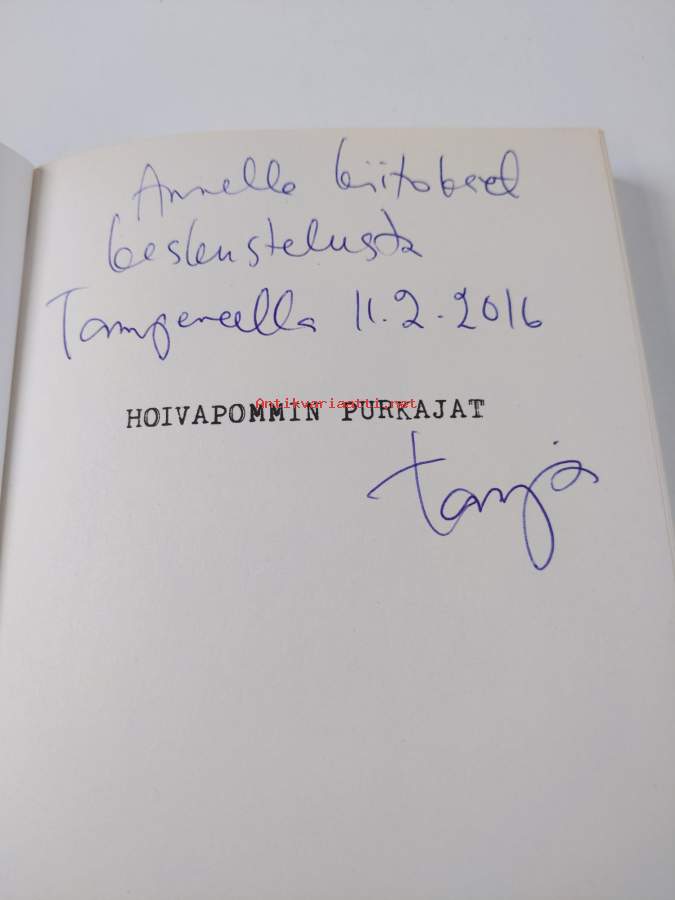 Annelle kiitokset
keskustelusta
Tampereella 11.2.2016
Antikvariaatti.net
HOIVAPOMMIN PURKAJAT
Tanja